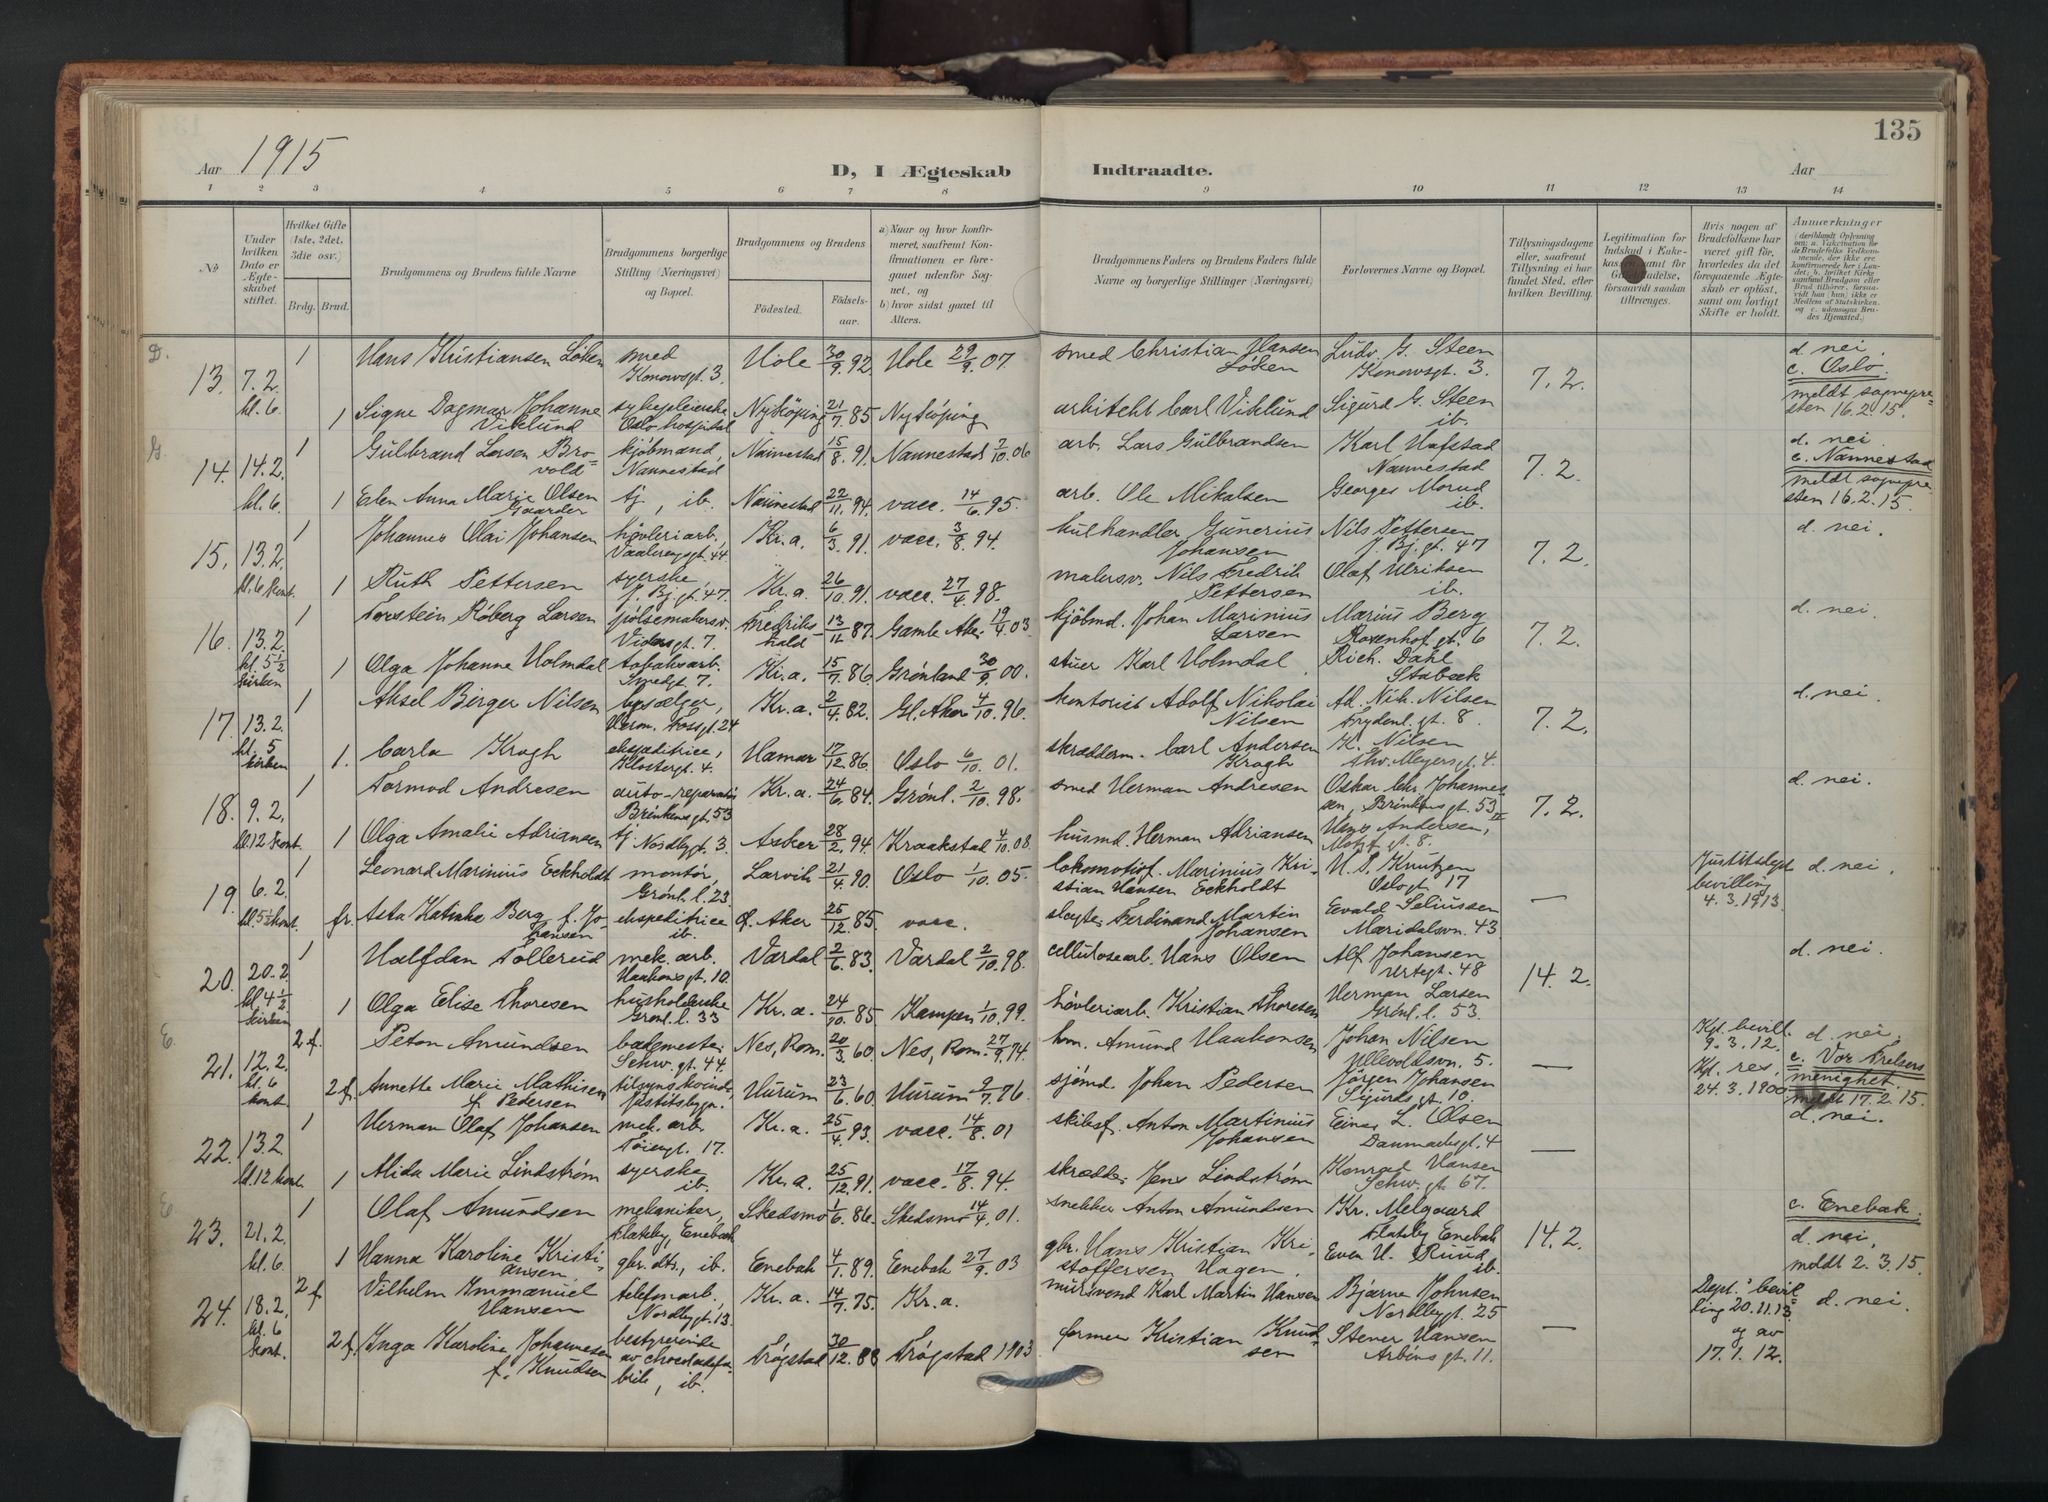 135
Aar 1915
D, I Ægteskab Indtraadte.
Aar
1 2 3 4 5 6 7 8 9 10 11 12 13 14
No
Under hvilken Dato er Ægteskabet stiftet.
Hvilket Gifte (1ste, 2det, 3die osv.)
Brdg. Brud.
Brudgommens og Brudens fulde Navne
Brudgommens borgerlige Stilling (Næringsvei) og Bopæl.
Brudgommens og Brudens
Fødested.
Fødselsaar.
a) Naar og hvor konfirmeret, saafremt Konfirmationen er foregaaet udenfor Sognet, og
b) hvor sidst gaaet til Alters.
Brudgommens Faders og Brudens Faders fulde Navne og borgerlige Stillinger (Næringsvei)
Forlovernes Navne og Bopæl.
Tillysningsdagene eller, saafremt Tillysning ei har fundet Sted, efter hvilken Bevilling.
Legitimation for Indskud i Enkekassen samt for Giftetilladelse, forsaavidt saadan tiltrænges.
Hvis nogen af Brudefolkene har været gift før, hvorledes da det foregaaende Ægteskab er opløst, samt om lovligt Skifte er holdt.
Anmærkninger
D.
13. 7.2. kl. 6.
1 Hans Kristiansen Løken smed Konowsgt. 3 Hole 30/9 92 Hole 29/9 07 smed Christian Hansen Løken Ludv. G. Steen Konowsgt. 3. 7.2. d. nei. c. Oslo. meldt sognepresten 16.2.15.
1 Signe Dagmar Johanne Viklund sykepleierske Oslo hospital Nykøping 21/7 85 Nykøping arkitekt Carl Viklund Sigurd G. Steen ib.
G.
14. 14.2. kl. 6.
1 Gulbrand Larsen Brovold kjøbmand, Nannestad Nannestad 15/8 91. Nannestad 7/10 06 arb. Lars Gulbrandsen Karl Hafstad Nannestad 7.2. d. nei. c. Nannestad meldt sognepresten 16.2.15.
1 Elen Anna Marie Olsen Gaarder tj, ib. Nannestad 22/11 94. vacc. 14/6 95. arb. Ole Mikalsen Georges Morud ib.
15. 13.2. kl. 6 Kont.
1 Johannes Olai Johansen høvleriarb. Vaalerenggt. 44 Kr.a. 6/3 91. vacc. 3/8 94. kulhandler Gunerius Johansen Nils Pettersen J. Bj. gt. 47 7.2. d. nei.
1 Ruth Pettersen syerske, J. Bj. gt. 47. Kr.a. 26/10 91. vacc. 27/4 98. malersv. Nils Fredrik Pettersen Olaf Ulriksen ib.
16. 13.2. kl. 5 1/2 kirken
1 Torstein Røberg Larsen pølsemakersv. Vidarsgt. 7 Fredrikshald 13/12 87. Gamle Aker 19/4 03. kjøbmd. Johan Marinius Larsen Marius Berg Rosenhof gt. 6 7.2. d. nei.
1 Olga Johanne Holmdal tobaksarb. Smedgt. 7. Kr.a. 15/7 86. Grønland 30/9 00. stuer Karl Holmdal Rich. Dahl Stabæk
17. 13.2. kl. 5 kirken
1 Aksel Birger Nilsen bysælger, Herm. Fossgt. 24 Kr.a. 2/4 82. Gl. Aker 4/10 96. kontorist Adolf Nikolai Nilsen Ad. Nik. Nilsen Frydenl. gt. 8. 7.2. d. nei.
1. Carla Krogh ekspeditrice, Klostergt. 4. Hamar 17/12 86. Oslo 6/10 01. skrædderm. Carl Andersen Krogh K. Nilsen Thv. Meyersgt. 4.
18. 9.2. kl. 12 Kont.
1 Tormod Andresen auto-reparatør Brinkensgt. 53 Kr.a. 24/6 84. Grønl. 2/10 98. smed Herman Andresen Oskar Chr. Johannessen, Brinkens gt. 53 II 7.2. d. nei.
1 Olga Amalie Adriansen tj. Nordbygt. 3. Asker 28/2 94. Kraakstad 4/10 08. husmd. Herman Adriansen Hans Andersen, Motzf. gt. 8.
19. 6.2. kl. 5 1/2 Kont.
1 Leonard Marinius Eckholdt montør, Grønl. l. 23. Larvik 21/4 90. Oslo 1/10 05. lokomotivf. Marinius Kristian Hansen Eckholdt H. P. Knutzen Oslogt 17 — Justitsdept bevilling 4.3.1913. d. nei.
fr. Asta Katinka Berg f. Johansen ekspeditrice ib. Ø. Aker 25/12 85. vacc. slagter Ferdinand Martin Johansen Evald Seliussen Maridalsvn. 43
20. 20.2 kl 4 1/2 kirken
1 Halfdan Tollerud mek. arb. Haakonsgt. 10 Vardal 2/6 83. Vardal 2/10 98. cellulosearb. Hans Olsen Alf Johansen Urtegt. 48 14.2. d. nei.
1 Olga Elise Thoresen husholderske Grønl. l. 33 Kr.a. 24/10 85. Kampen 1/10 99. høvleriarb. Kristian Thoresen Herman Larsen Grønl. l. 53.
E.
21. 12.2. kl. 6 kont.
2 f. Amundsen bademester Schw. gt. 44. Nes, Rom. 20/3 60. Nes, Rom. 27/9 74. hm. Amund Haakonsen Johan Nilsen Ullevoldsvn. 5. — Kgl. bevill. 9.3.12. Kgl. res. 24.3.1900 d. nei. c. Vor Frelsers menighet. meldt 17.2.15.
2 f. Annette Marie Mathisen f. Pedersen tilsynskvinde Justitsbygn. Hurum 23/6 60. Hurum 9/7 76. sjømd. Johan Pedersen Jørgen Johansen Sigurds gt. 10.
22. 13.2. kl. 12 Kont.
1 Herman Olaf Johansen mek. arb. Tøiengt. 17. Kr.a. 25/4 93. vacc. 14/8 01 skibsf. Anton Martinius Johansen Einar L. Olsen Danmarksgt. 4 — d. nei.
1 Alida Marie Lindstrøm syerske ib. Kr.a. 25/12 91. vacc. 17/8 94. skrædder Jens Lindstrøm Konrad Hansen Schw. gt. 67.
E
23. 21.2. kl. 6.
1 Olaf Amundsen mekaniker, Flateby, Enebak Skedsmo 1/6 86. Skedsmo 14/4 01. snekker Anton Amundsen Kr. Melgaard Flateby Enebak 14.2. c. Enebak. d. nei, meldt 2.3.15.
1 Hanna Karoline Kristiansen gbr. dtr., ib. Enebak 4/1 89. Enebak 27/9 03 gbr. Hans Kristian Kristoffersen Hagen. Even H. Ruud ib.
24. 18.2. kl. 6 Kont.
2 f Vilhelm Immanuel Hansen telefonarb. Nordbygt. 13. Kr.a. 14/7 75. Kr.a. mursvend Karl Martin Hansen Bjarne Johnsen Nordbygt. 25 — Dept.' bevilling 20.11.13 og av 17.1.12. d. nei.
2 f. Inga Karoline Johannesen f. Knudsen bestyrerinde av chocoladefabrik, ib. Trøgstad 30/12 88 Trøgstad 1903 former Kristian Knudsen Stener Hansen Arbins gt. 11.